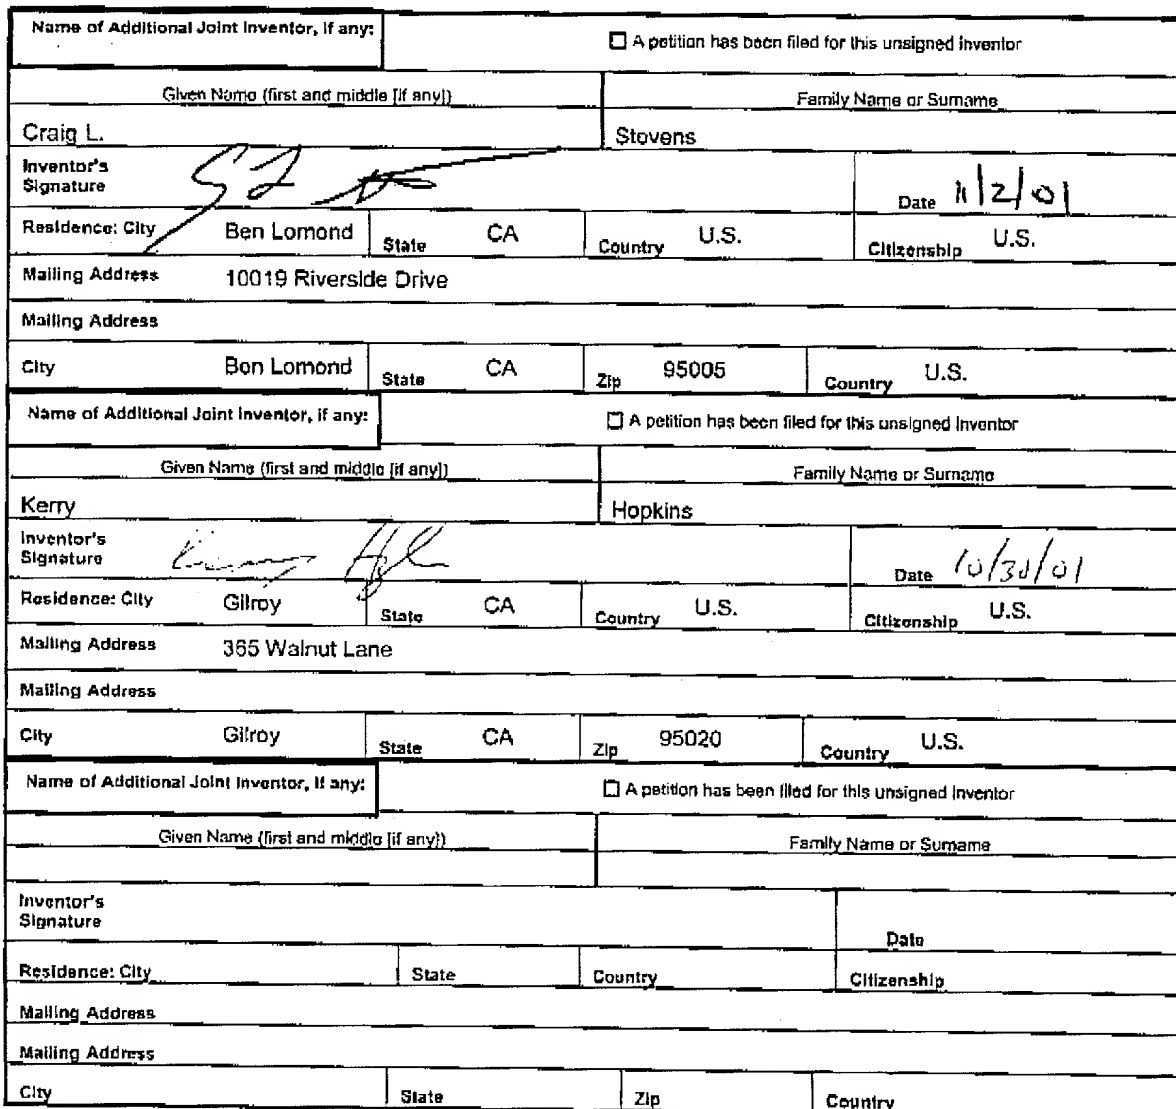 Name of Additional Joint Inventor, if any: ☐ A petition has been filed for this unsigned inventor
Given Name (first and middle [if any]) Family Name or Surname
Craig L. Stovens
Inventor's
Signature Date 11/2/01
Residence: City Ben Lomond State CA Country U.S. Citizenship U.S.
Mailing Address 10019 Riverside Drive
Mailing Address
City Bon Lomond State CA Zip 95005 Country U.S.
Name of Additional Joint Inventor, if any: ☐ A petition has been filed for this unsigned inventor
Given Name (first and middle [if any]) Family Name or Surname
Kerry Hopkins
Inventor's
Signature Date 10/30/01
Residence: City Gilroy State CA Country U.S. Citizenship U.S.
Mailing Address 365 Walnut Lane
Mailing Address
City Gilroy State CA Zip 95020 Country U.S.
Name of Additional Joint Inventor, if any: ☐ A petition has been filed for this unsigned inventor
Given Name (first and middle [if any]) Family Name or Surname
Inventor's
Signature Date
Residence: City State Country Citizenship
Mailing Address
Mailing Address
City State Zip Country